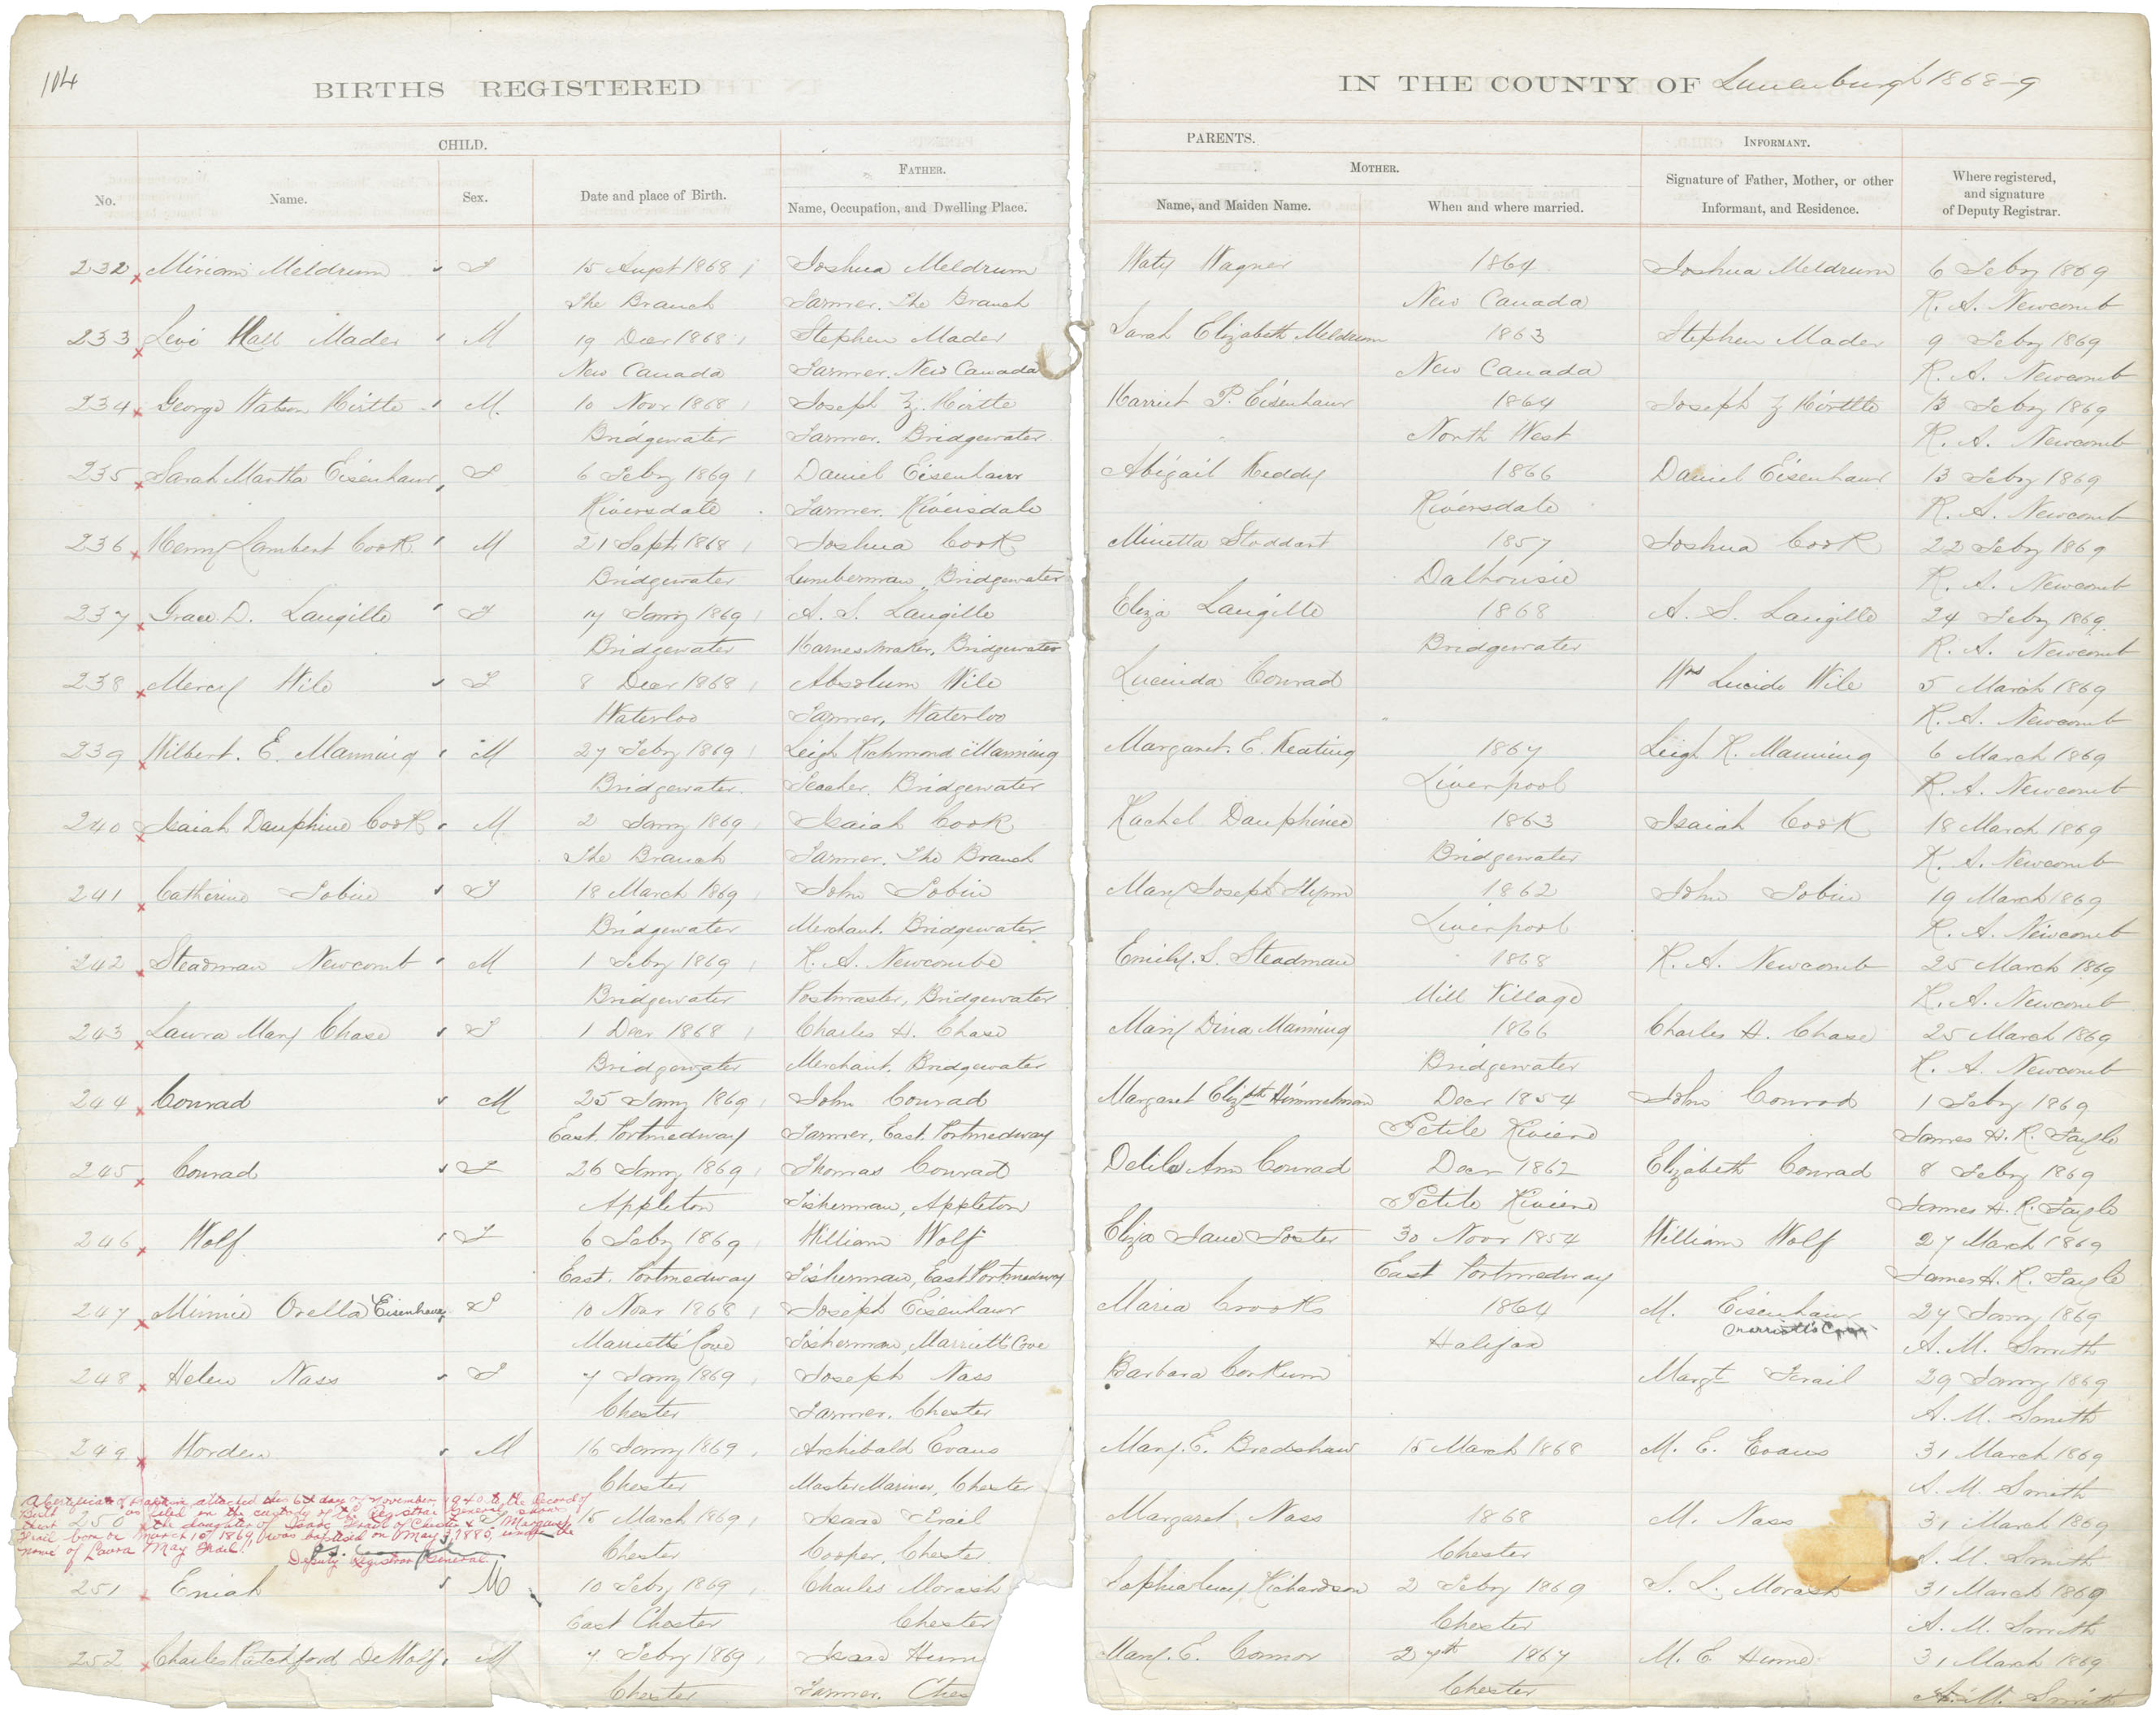 104
BIRTHS REGISTERED IN THE COUNTY OF Lunenburgh 1868-9
CHILD. PARENTS. INFORMANT.
FATHER. MOTHER.
No. Name. Sex. Date and place of Birth. Name, Occupation, and Dwelling Place. Name, and Maiden Name. When and where married. Signature of Father, Mother, or other Informant, and Residence. Where registered, and signature of Deputy Registrar.
232 Miriam Meldrum F 15 Augst 1868 Joshua Meldrum Katy Wagner 1864 Joshua Meldrum 6 Feby 1869
The Branch Farmer. The Branch New Canada R. A. Newcomb
233 Levi Hall Mader M 19 Decr 1868 Stephen Mader Sarah Elizabeth Meldrum 1863 Stephen Mader 9 Feby 1869
New Canada Farmer. New Canada New Canada R. A. Newcomb
234 George Watson Hirtle M. 10 Novr 1868 Joseph Z. Hirtle Harriet P. Eisenhaur 1864 Joseph Z Hirttle 13 Feby 1869
Bridgewater Farmer. Bridgewater North West R. A. Newcomb
235 Sarah Martha Eisenhaur F 6 Feby 1869 Daniel Eisenhaur Abigail Keddy 1866 Daniel Eisenhaur 13 Feby 1869
Riversdale Farmer. Riversdale Riversdale R. A. Newcomb
236 Henry Lambert Cook M 21 Sept 1868 Joshua Cook Minetta Stoddart 1857 Joshua Cook 22 Feby 1869
Bridgewater Lumberman, Bridgewater Dalhousie R. A. Newcomb
237 Grace D. Langille F 17 Jany 1869 A. S. Langille Eliza Langille 1868 A. S. Langille 24 Feby 1869
Bridgewater Harnesmaker, Bridgewater Bridgewater R. A. Newcomb
238 Mercy Wile F 8 Decr 1868 Absolum Wile Lucinda Conrad Wile 5 March 1869
Waterloo Farmer, Waterloo R. A. Newcomb
239 Wilbert. E. Manning M 27 Feby 1869 Leigh Richmond Manning Margaret. E. Keating 1867 Leigh R. Manning 6 March 1869
Bridgewater Teacher. Bridgewater Liverpool R. A. Newcomb
240 Isaiah Dauphine Cook M 2 Jany 1869 Isaiah Cook Rachel Dauphinee 1863 Isaiah Cook 18 March 1869
The Branch Farmer. The Branch Bridgewater R. A. Newcomb
241 Catherine Tobin F 18 March 1869 John Tobin Mary Joseph 1862 John Tobin 19 March 1869
Bridgewater Merchant. Bridgewater Liverpool R. A. Newcomb
242 Steadman Newcomb M 1 Feby 1869 R. A. Newcombe Emily. S. Steadman 1868 R. A. Newcomb 25 March 1869
Bridgewater Postmaster, Bridgewater Mill Village R. A. Newcomb
243 Laura Mary Chase F 1 Decr 1868 Charles H. Chase Mary Manning 1866 Charles H. Chase 25 March 1869
Bridgewater Merchant. Bridgewater Bridgewater R. A. Newcomb
244 Conrad M 25 Jany 1869 John Conrad Margaret Elizbth Himmelman Decr 1854 John Conrad 1 Feby 1869
East. Portmedway Farmer, East. Portmedway Petite Riviere James H. R. Fayle
245 Conrad F 26 Jany 1869 Thomas Conrad Delila Ann Conrad Decr 1862 Elizabeth Conrad 8 Feby 1869
Appleton Fisherman, Appleton Petite Riviere James H. R. Fayle
246 Wolf F 6 Feby 1869 William Wolf Eliza Jane Foster 30 Novr 1854 William Wolf 27 March 1869
East. Portmedway Fisherman, East Portmedway East Portmedway James H. R. Fayle
247 Minnie Orella Eisenhaur F 10 Novr 1868 Joseph Eisenhaur Maria Crooks 1864 M. Eisenhaur 27 Jany 1869
Marriett's Cove Fisherman, Marriett's Cove Halifax Marriotts Cove A. M. Smith
248 Helen Nass F 7 Jany 1869 Joseph Nass Barbara Corkum Margt Frail 29 Jany 1869
Chester Farmer. Chester A. M. Smith
249 Worden M 16 Jany 1869 Archibald Evans Mary. E. Bradshaw 15 March 1868 M. E. Evans 31 March 1869
Chester Master Mariner, Chester A. M. Smith
A Certificate of Baptism, attached this 6th day of November, 1940 to the Record of
Birth 250 as filed in the custody of the Registrar General, shows
that the daughter of Isaac Frail of Chester & Margaret
Frail born on March 15, 1869, was baptised on May 3, 1885, under the
name of Laura May Frail.
Deputy Registrar General.
15 March 1869 Isaac Frail Margaret Nass 1868 M. Nass 31 March 1869
Chester Cooper, Chester Chester A. M. Smith
251 Eniah M 10 Feby 1869 Charles Morash Sophia Lucy Richardson 2 Feby 1869 S. L. Morash 31 March 1869
East Chester Chester Chester A. M. Smith
252 Charles Ratchford DeWolf M 7 Feby 1869 Isaac Hum Mary. E. Connor 27th 1867 M. E Hume 31 March 1869
Chester Farmer. Ches Chester A. M. Smith